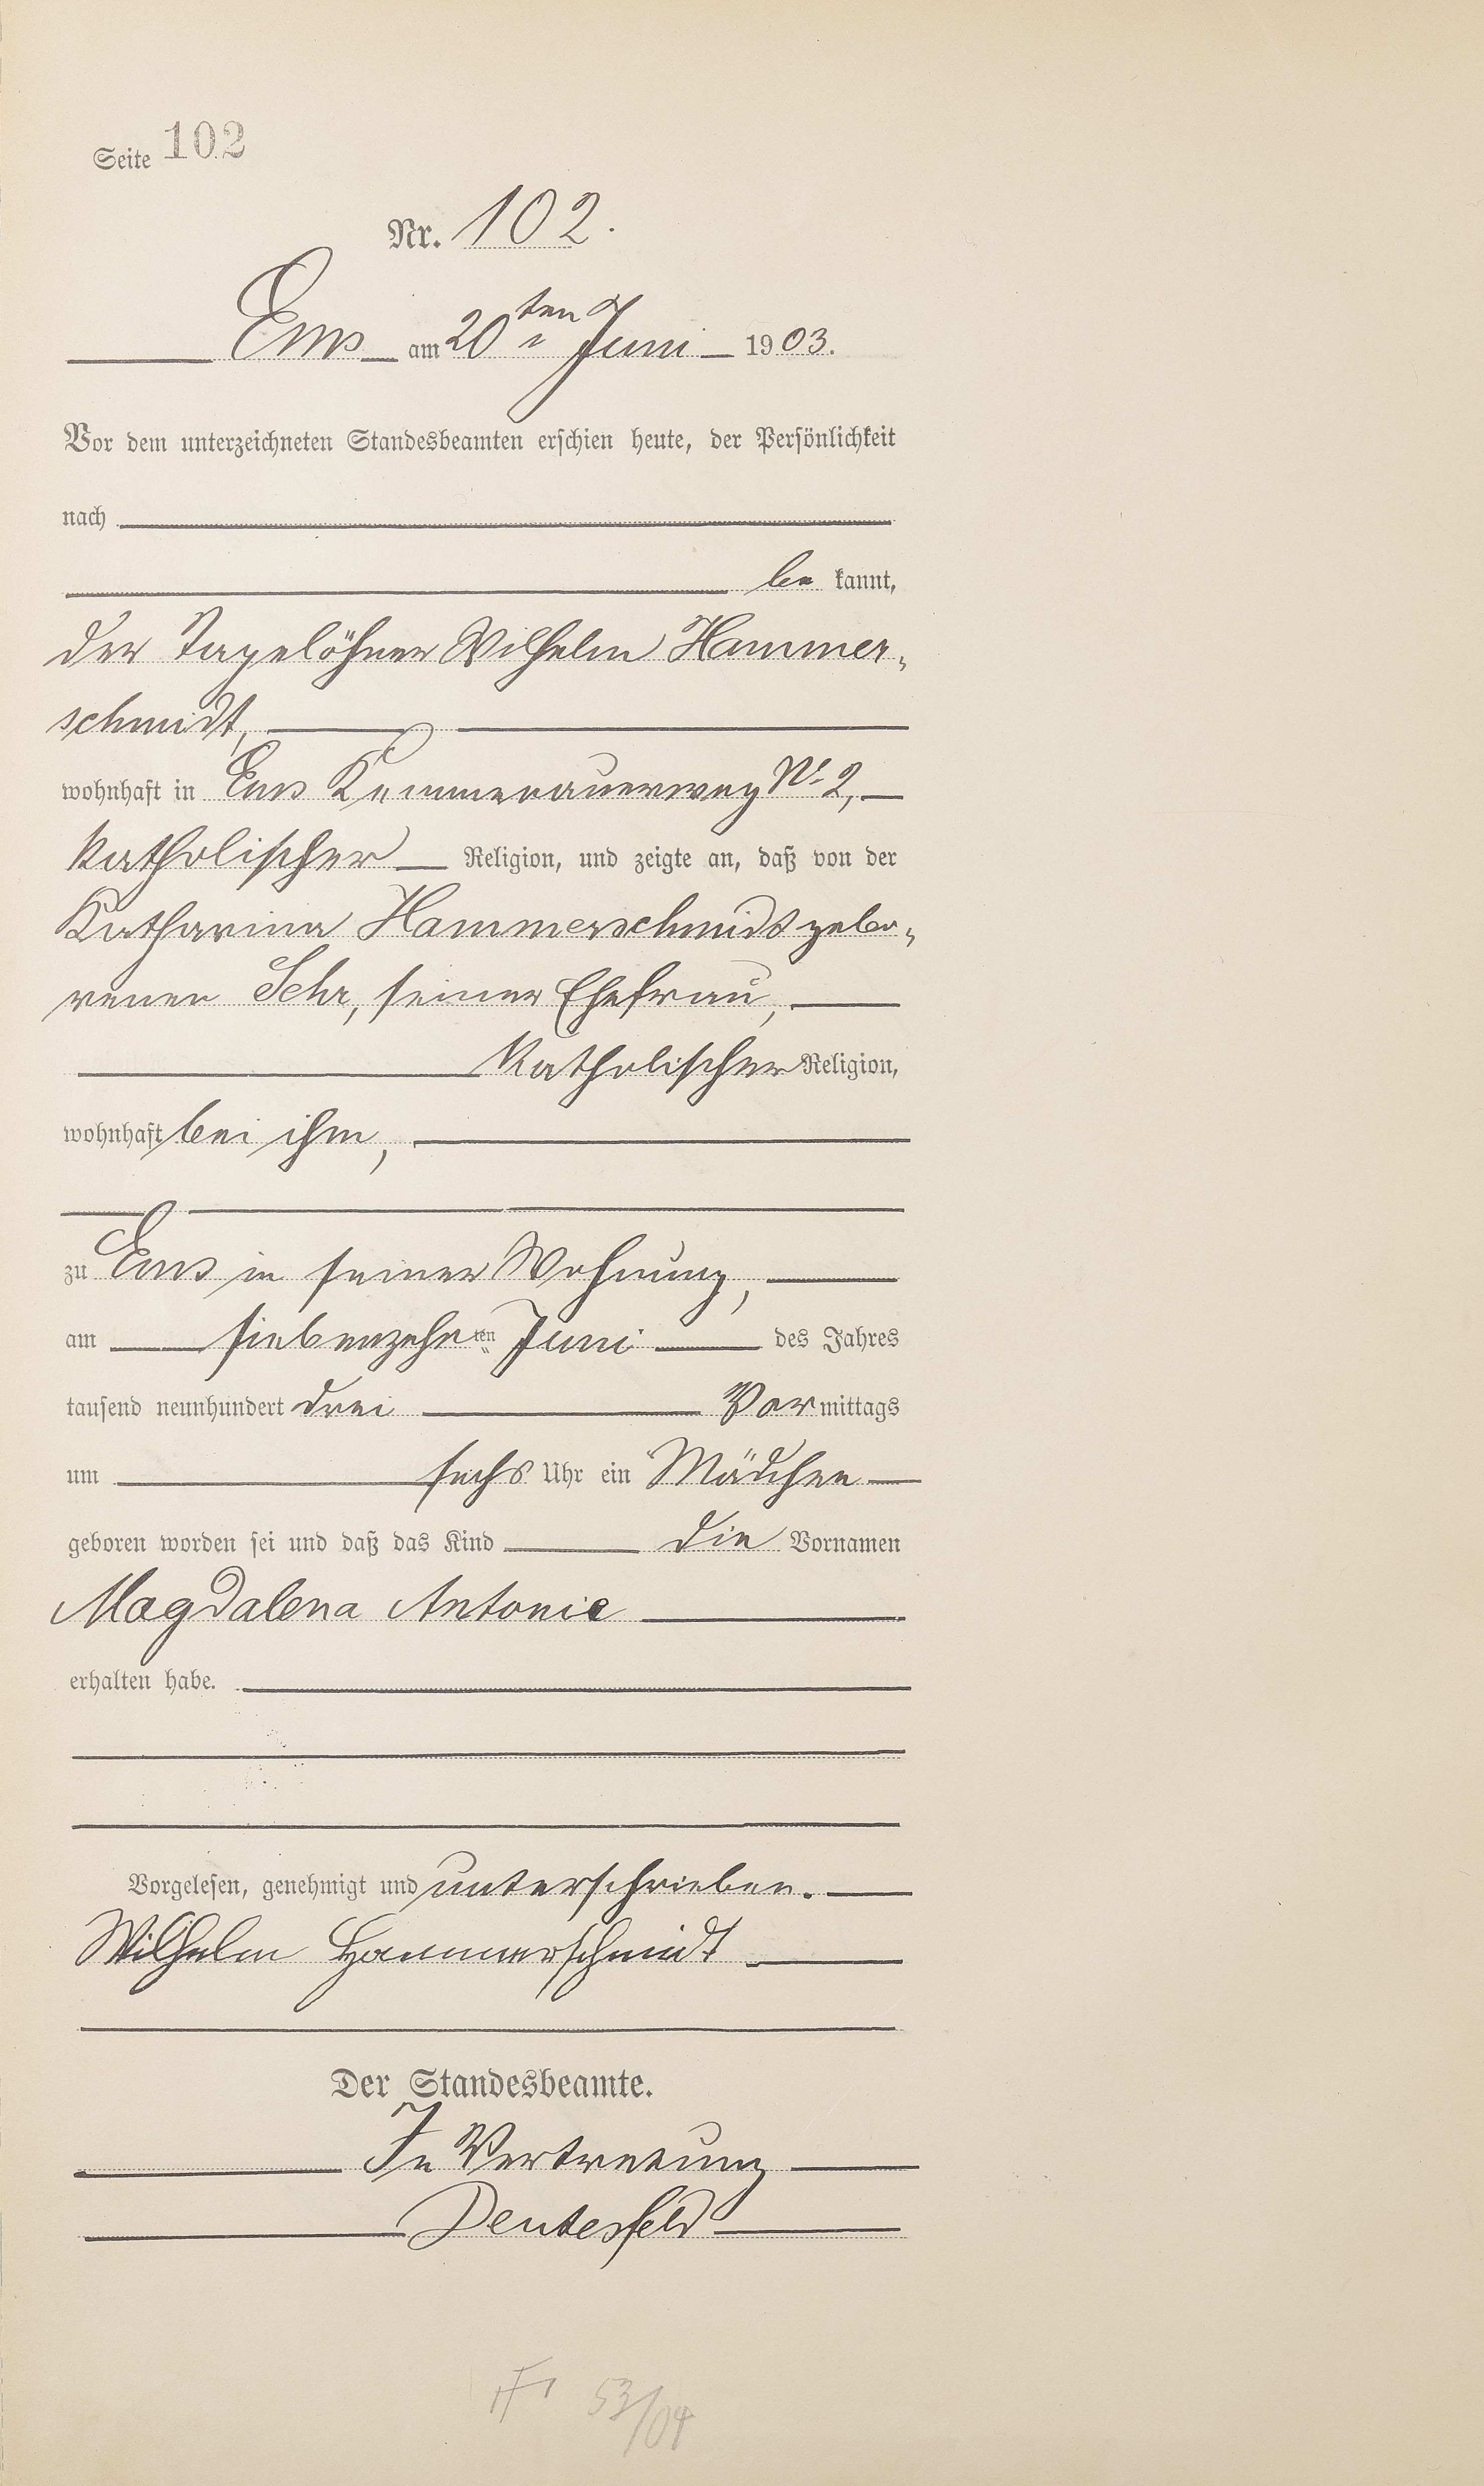 Seite 102
Nr. 102.
Ems am 20ten Juni 1903.
Vor dem unterzeichneten Standesbeamten erschien heute, der Persönlichkeit
nach
be kannt,
der Tagelöhner Wilhelm Hammer-
schmidt,
wohnhaft in Ems Kemmenauerweg No 2,
katholischer Religion, und zeigte an, daß von der
Katharina Hammerschmidt gebo-
renen Sehr, seiner Ehefrau,
katholischer Religion,
wohnhaft bei ihm,
zu Ems in seiner Wohnung,
am siebenzehnten Juni des Jahres
tausend neunhundert drei Vor mittags
um sechs Uhr ein Mädchen
geboren worden sei und daß das Kind die Vornamen
Magdalena Antonie
erhalten habe.
Vorgelesen, genehmigt und unterschrieben.
Wilhelm Hammerschmidt
Der Standesbeamte.
In Vertretung
53/04